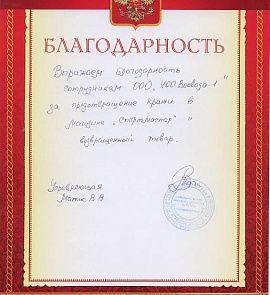 БЛАГОДАРНОСТЬ
Выражаем благодарность
сотрудникам ООО „ЧОО Воевода-1"
за предотвращение кражи в
магазине „Спортмастер" и
возвращенный товар.
Управляющая
Матис В.В